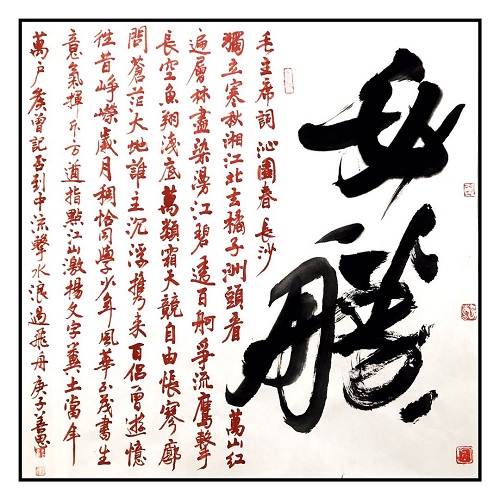 必勝
毛主席詞 沁園春 長沙
獨立寒秋湘江北去橘子洲頭看萬山紅
遍層林盡染漫江碧透百舸爭流鷹擊
長空魚翔淺底萬類霜天競自由悵寥廓
問蒼茫大地誰主沉浮攜來百侶曾遊憶
往昔崢嶸歲月稠恰同學少年風華正茂書生
意氣揮斥方遒指點江山激揚文字糞土當年
萬戶侯曾記否到中流擊水浪遏飛舟庚子善思